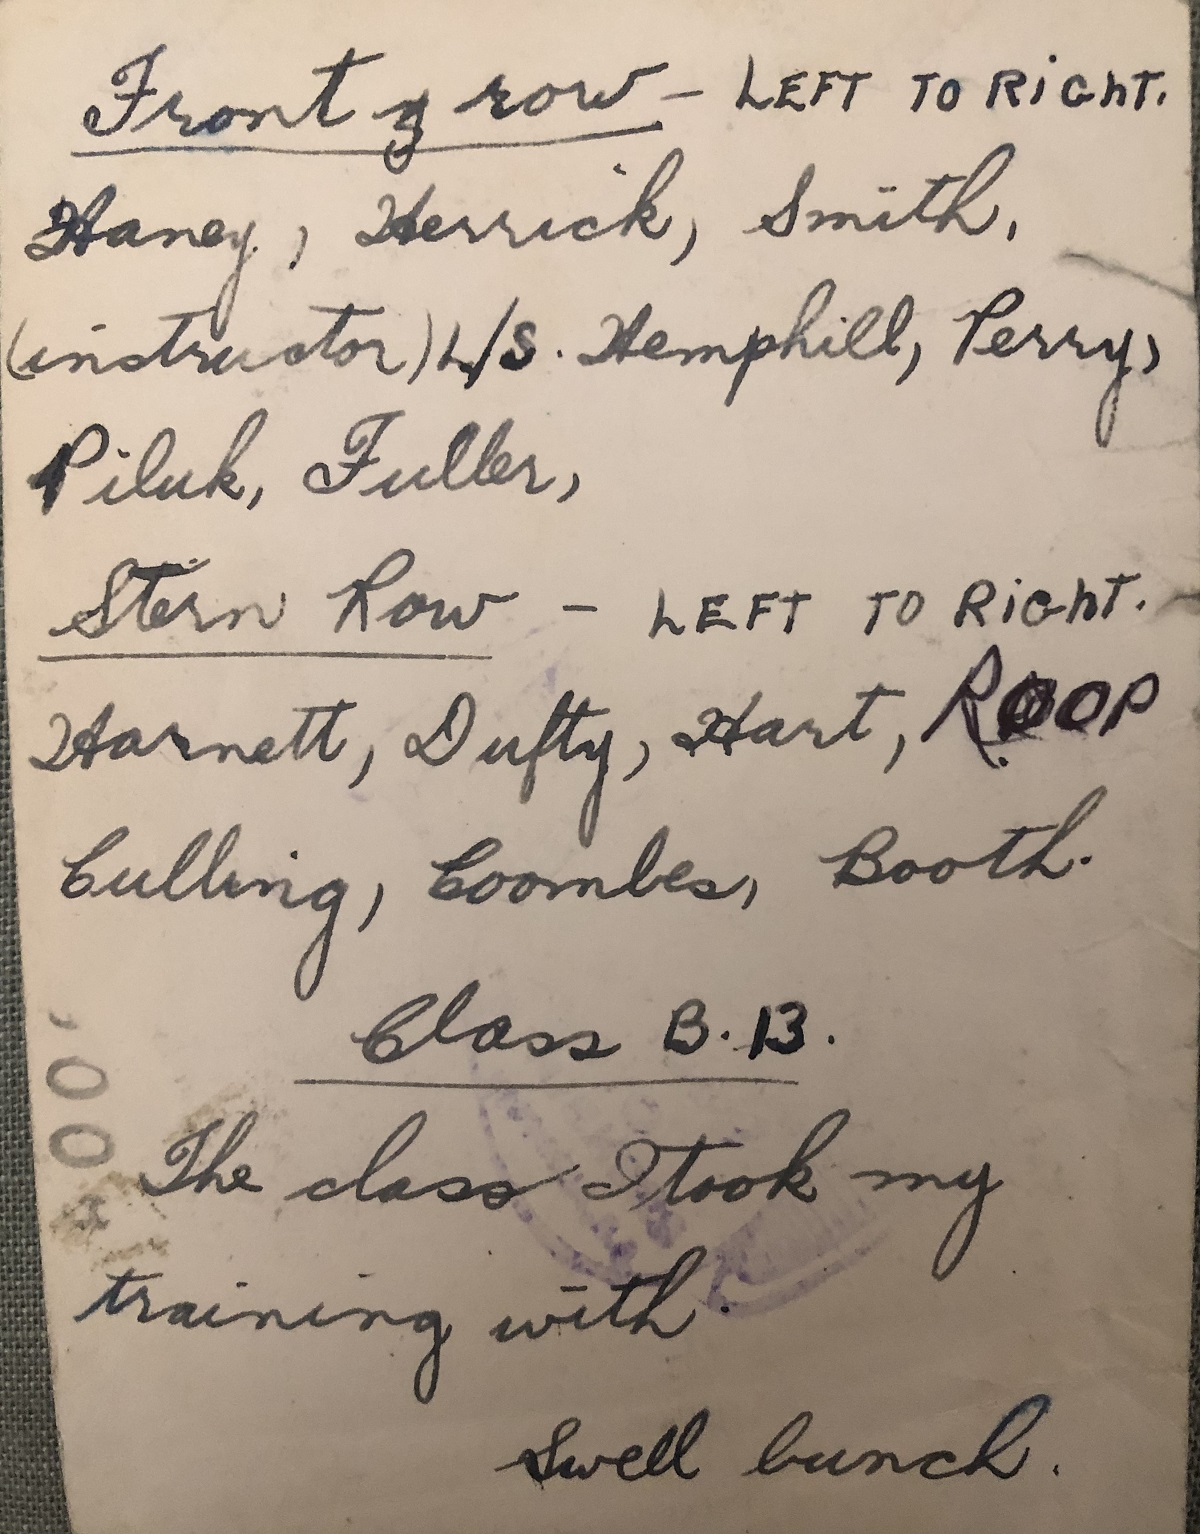 Front row - LEFT TO RiGhT.
Haney, Herrick, Smith,
(instructor) L/S. Hemphill, Perry,
Piluk, Fuller,
Stern Row - LEFT TO RiGhT.
Harnett, Dufty, Hart, ROOP
Culling, Coombes, Booth.
Class B.13.
The class I took my
training with.
Swell bunch.